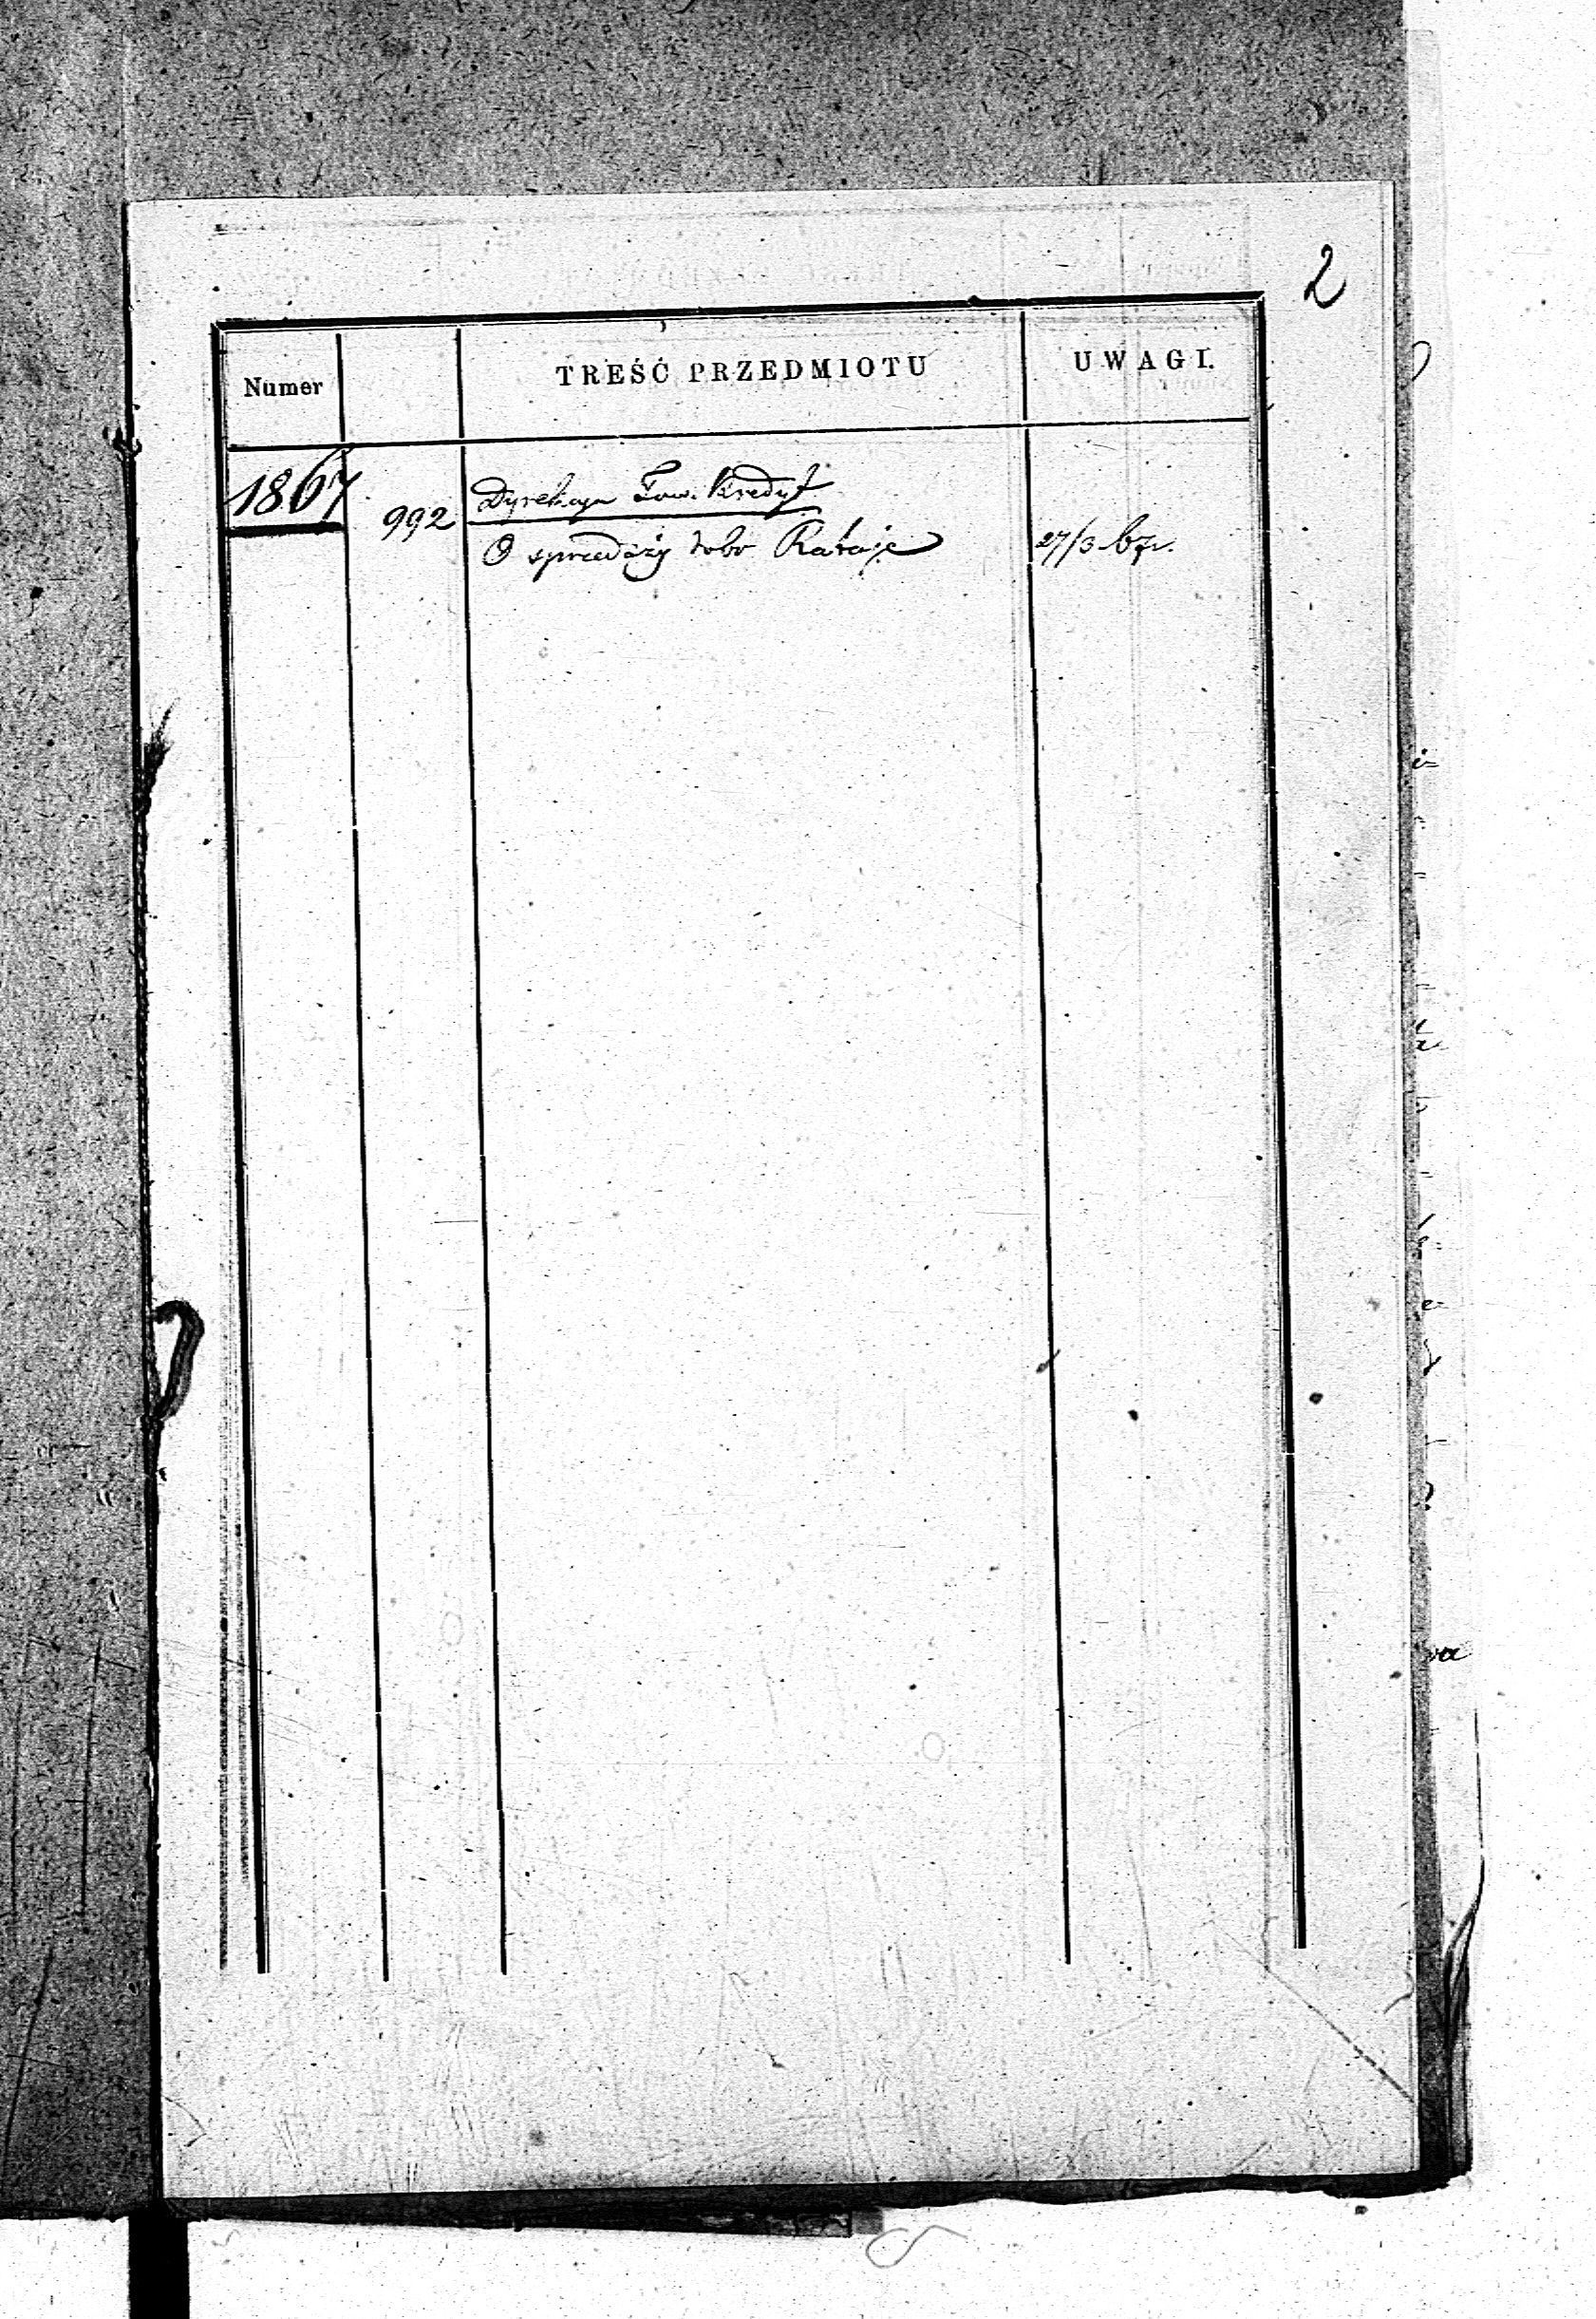 2
Numer TREŚĆ PRZEDMIOTU UWAGI.
1867
992 Dyrekcya Tow. Kredyt
O sprzedaży dobr Rataje 27/3 67r.